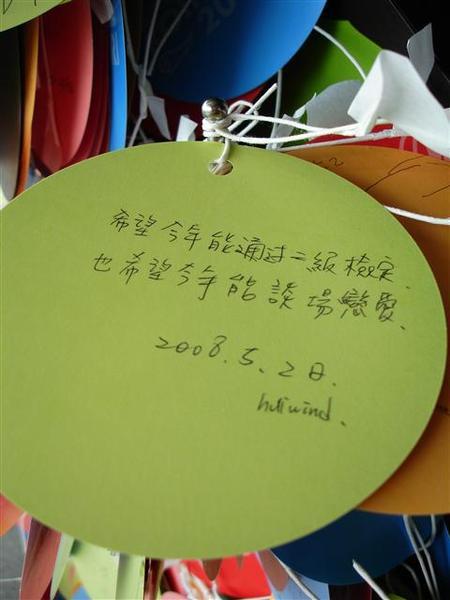 希望今年能通过二級檢定.
也希望今年能談場戀愛、
2008.5.2日.